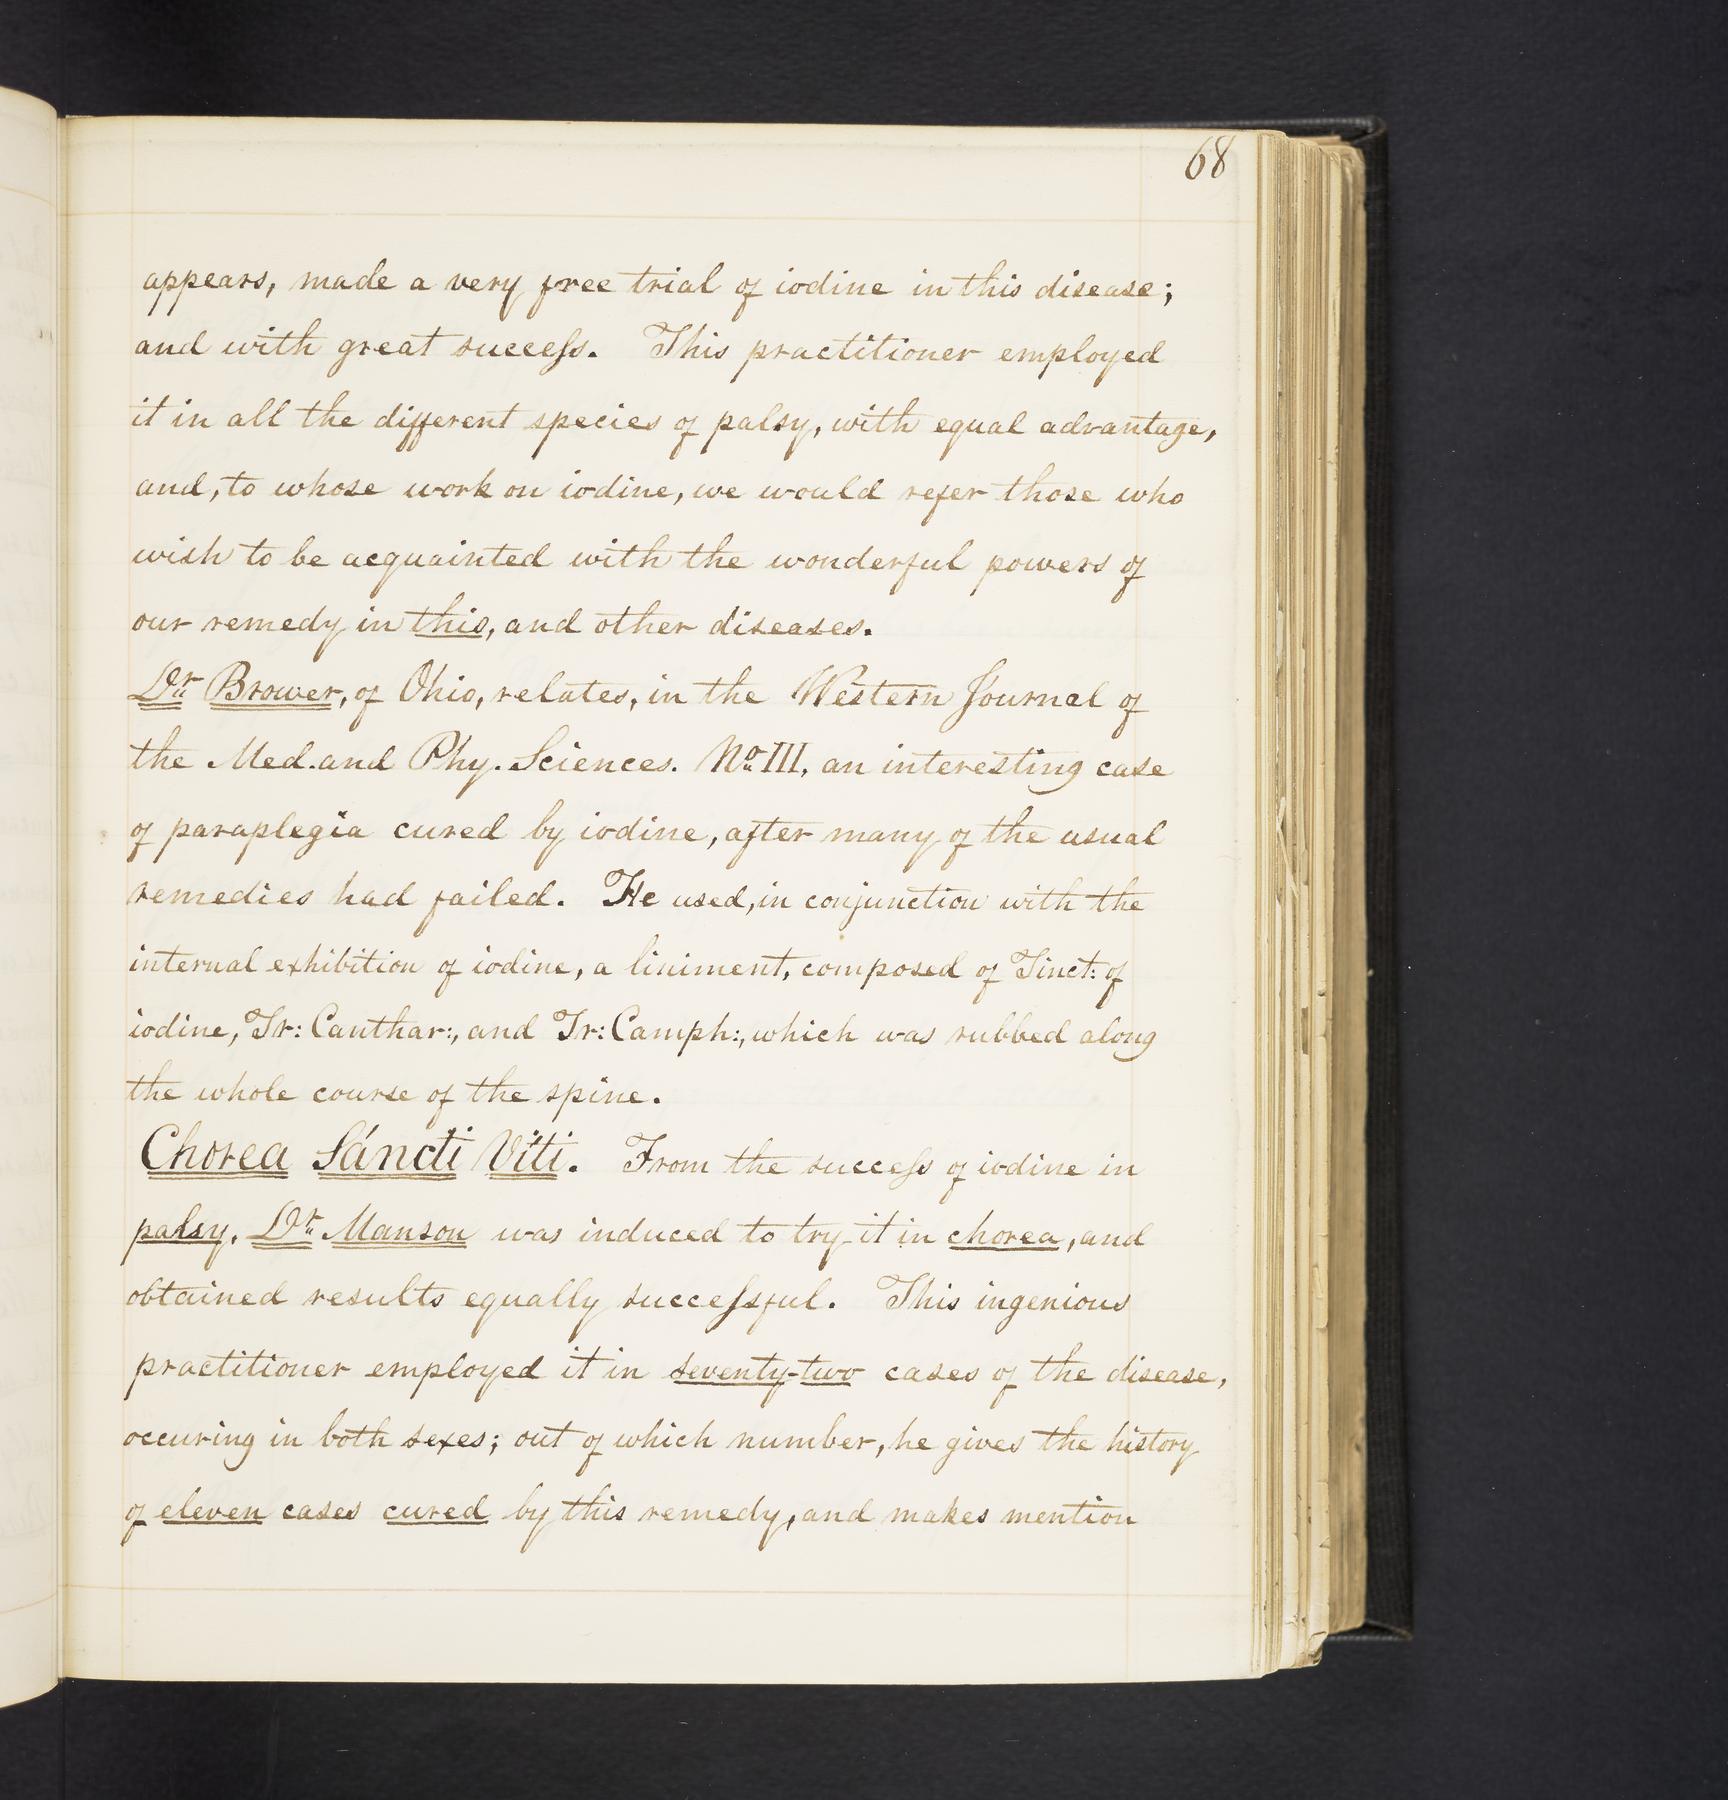 68
appears, made a very free trial of iodine in this disease;
and with great success. This practitioner employed
it in all the different species of palsy, with equal advantage,
and, to whose work on iodine, we would refer those who
wish to be acquainted with the wonderful powers of
our remedy in this, and other diseases.
Dr. Brower, of Ohio, relates, in the Western Journal of
the Med. and Phy. Sciences. No. III, an interesting case
of paraplegia cured by iodine, after many of the usual
remedies had failed. He used, in conjunction with the
internal exhibition of iodine, a liniment, composed of Tinct: of
iodine, Tr: Canthar:, and Tr: Camph:, which was rubbed along
the whole course of the spine.
Chorea Sáncti Viti. From the success of iodine in
palsy, Dr. Manson was induced to try it in chorea, and
obtained results equally successful. This ingenious
practitioner employed it in seventy-two cases of the disease,
occuring in both sexes; out of which number, he gives the history
of eleven cases cured by this remedy, and makes mention